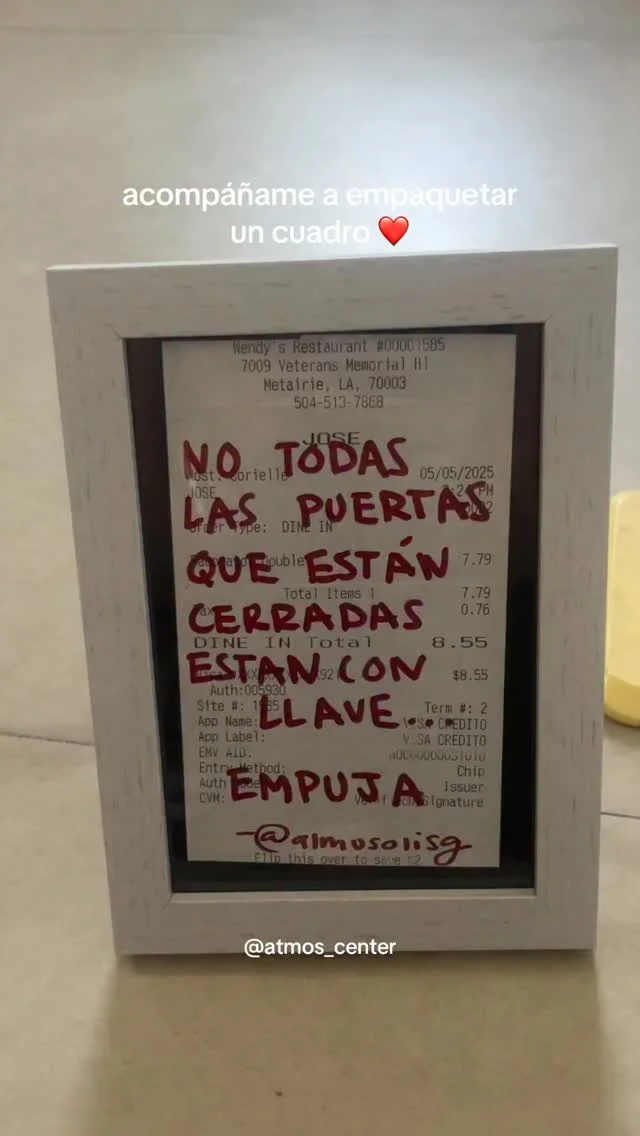 acompáñame a empaquetar
un cuadro ❤️
Wendy's Restaurant #00001585
7009 Veterans Memorial Bl
Metairie, LA, 70003
504-513-7868
JOSE
NO TODAS
Host: 05/05/2025
JOSE PM
LAS PUERTAS
Order Type: DINE IN
QUE ESTÁN
Double 7.79
Total Items 1 7.79
0.76
CERRADAS
DINE IN Total 8.55
ESTAN CON
$8.55
Auth:005930
Site #: Term #: 2
LLAVE.
App Name: CREDITO
App Label: VISA CREDITO
EMV AID:
Entry Method: Chip
EMPUJA
Auth Issuer
CVM: Signature
-@almusolisg
Flip this over to save $2
@atmos_center